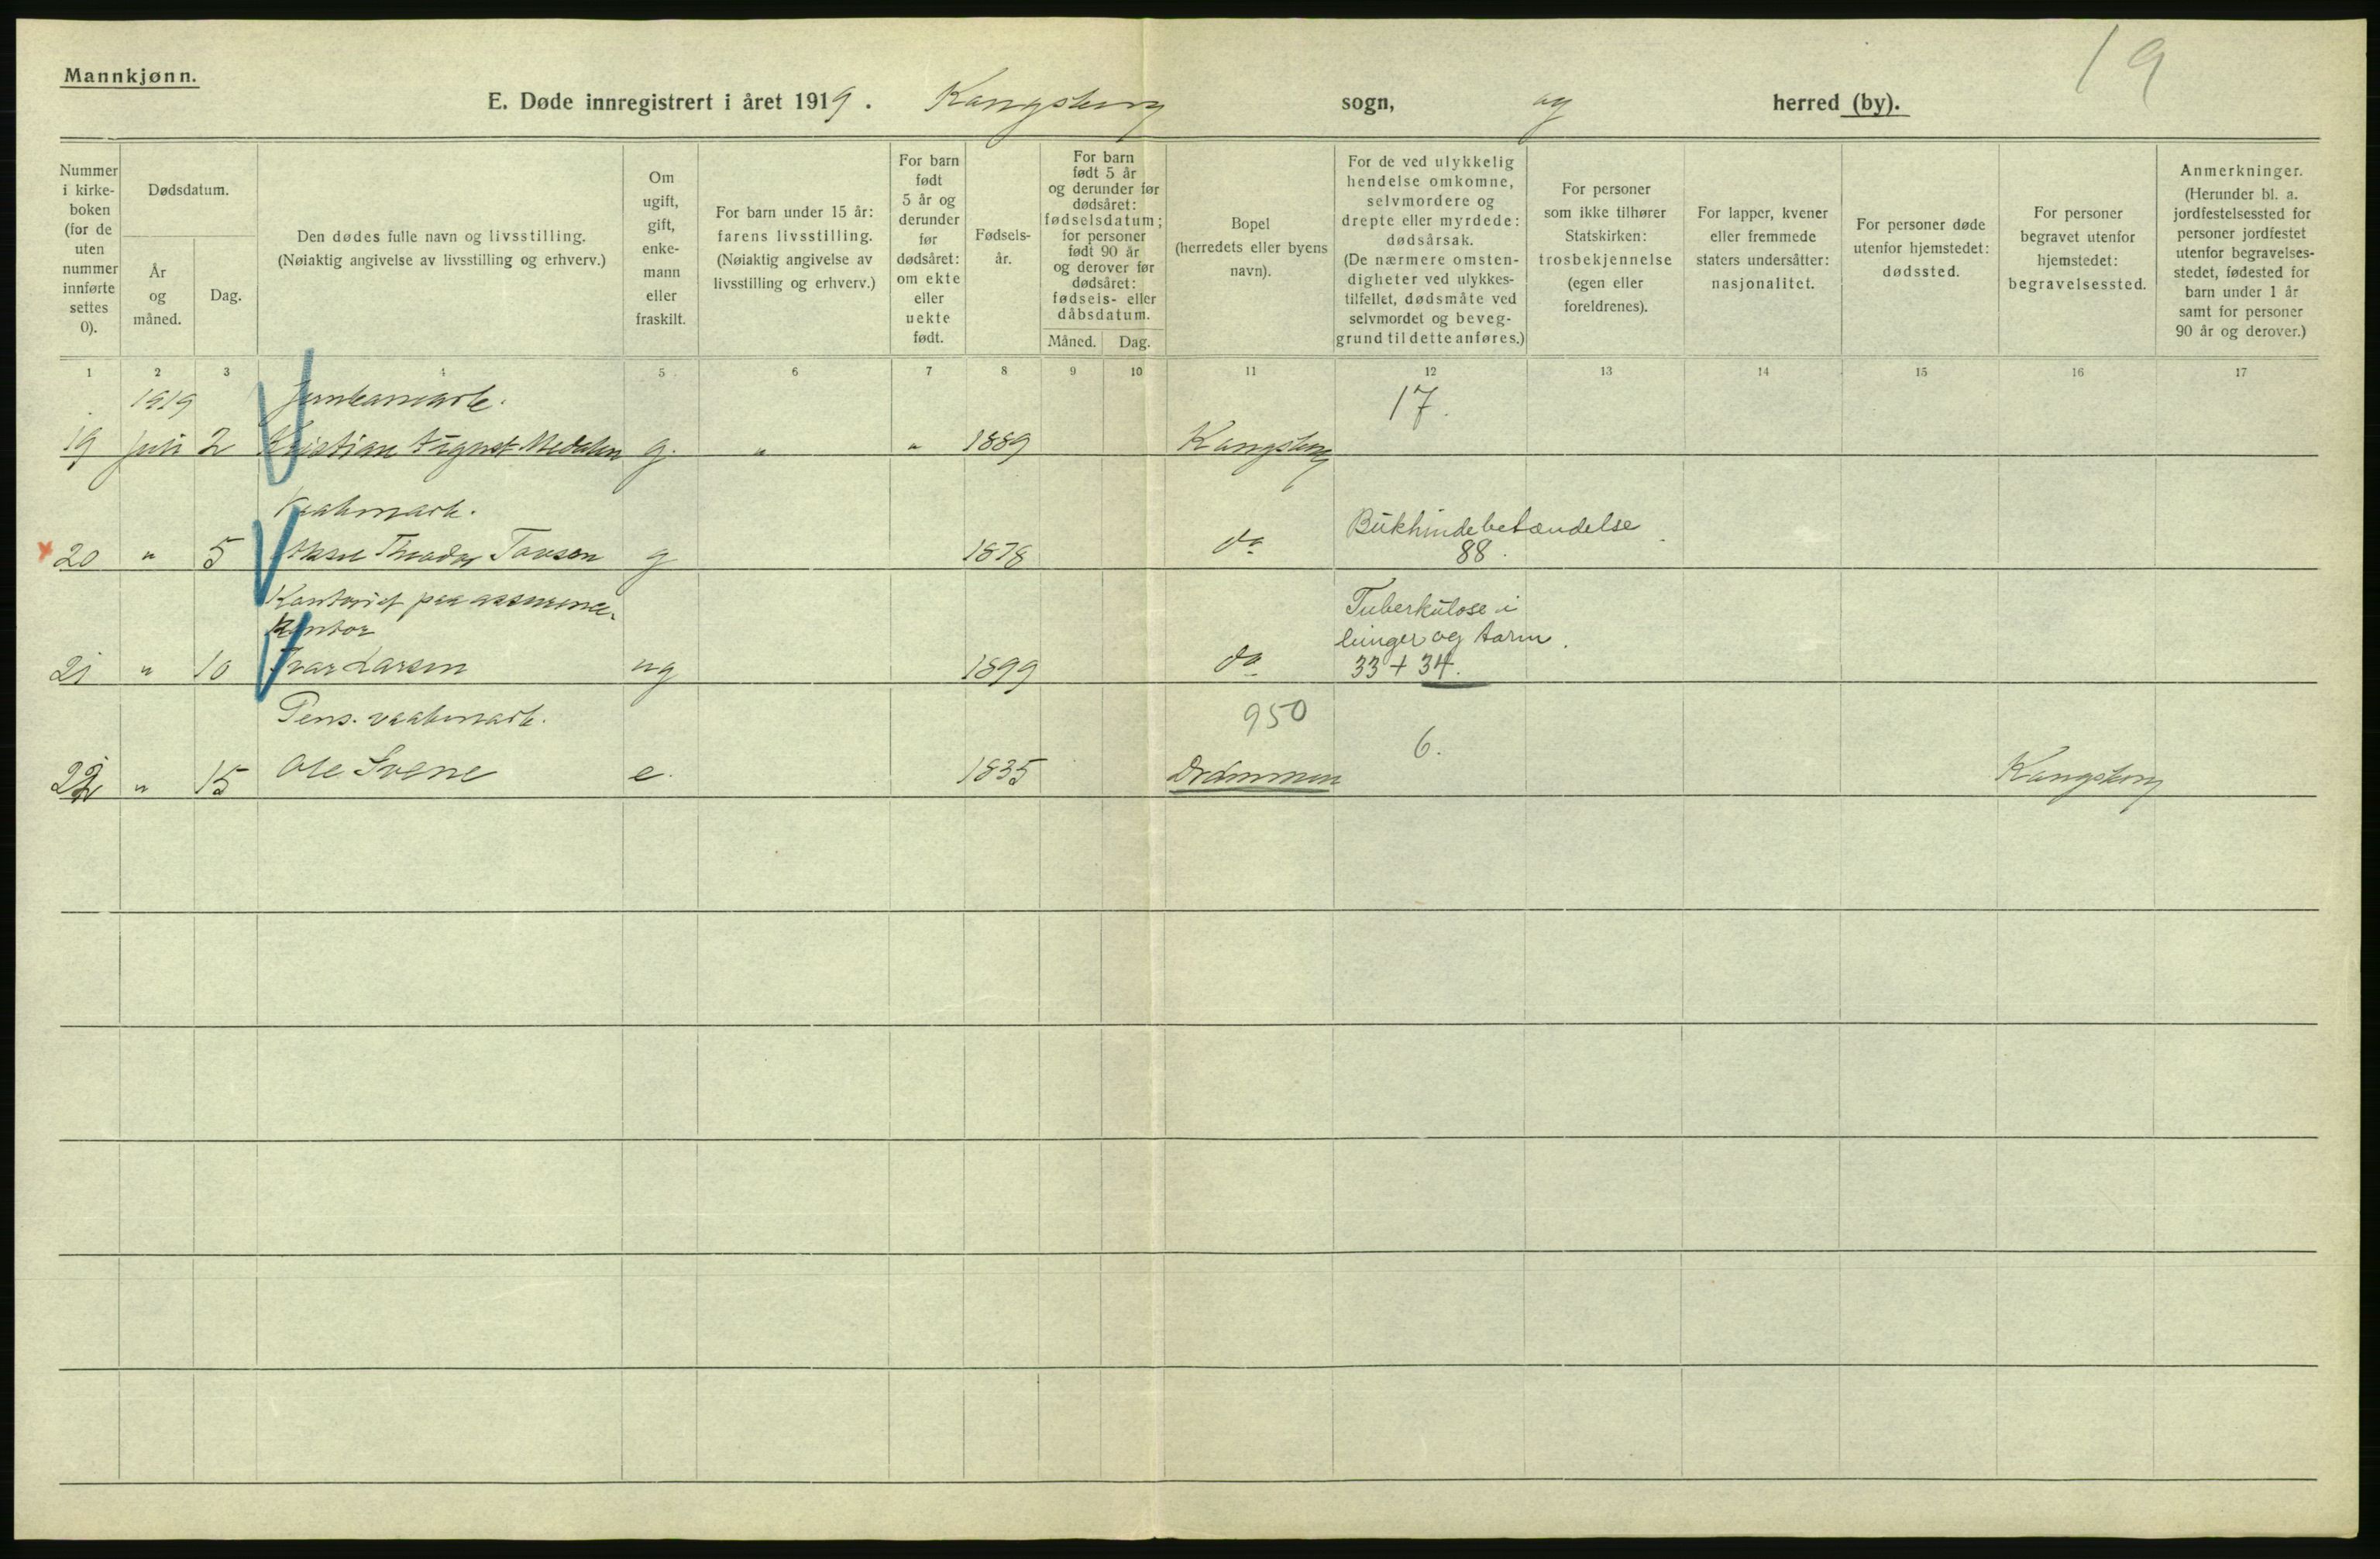 19
Mannkjønn.
E. Døde innregistrert i året 1919. Kongsberg sogn, og herred (by).
Nummer
i kirke-
boken
(for de
uten
nummer
innførte
settes
0).
Dødsdatum.
År
og
måned.
Dag.
Den dødes fulle navn og livsstilling.
(Nøiaktig angivelse av livsstilling og erhverv.)
Om
ugift,
gift,
enke-
mann
eller
fraskilt.
For barn under 15 år:
farens livsstilling.
(Nøiaktig angivelse av
livsstilling og erhverv.)
For barn
født
5 år og
derunder
før
dødsåret:
om ekte
eller
uekte
født.
Fødsels-
år.
For barn
født 5 år
og derunder før
dødsåret:
fødselsdatum;
for personer
født 90 år
og derover før
dødsåret:
fødsels- eller
dåbsdatum.
Måned. Dag.
Bopel
(herredets eller byens
navn).
For de ved ulykkelig
hendelse omkomne,
selvmordere og
drepte eller myrdede:
dødsårsak.
(De nærmere omsten-
digheter ved ulykkes-
tilfellet, dødsmåte ved
selvmordet og beveg-
grund til dette anføres.)
For personer
som ikke tilhører
Statskirken:
trosbekjennelse
(egen eller
foreldrenes).
For lapper, kvener
eller fremmede
staters undersåtter:
nasjonalitet.
For personer døde
utenfor hjemstedet:
dødssted.
For personer
begravet utenfor
hjemstedet:
begravelsessted.
Anmerkninger.
(Herunder bl. a.
jordfestelsessted for
personer jordfestet
utenfor begravelses-
stedet, fødested for
barn under 1 år
samt for personer
90 år og derover.)
1 2 3 4 5 6 7 8 9 10 11 12 13 14 15 16 17
1919 17.
19 Juli 2 Kristian August g. " " 1889 Kongsberg
Bukhindebetændelse
x 20 " 5 Theodor g 1878 do 88.
Kontorist paa
Kontor
Tuberkulose i
lunger og tarm.
21 " 10 Ivar Larsen ug 1899 do 33 + 34.
Pens. vaabenarb. 950 6.
22 " 15 Ole Svene e. 1835 Drammen Kongsberg